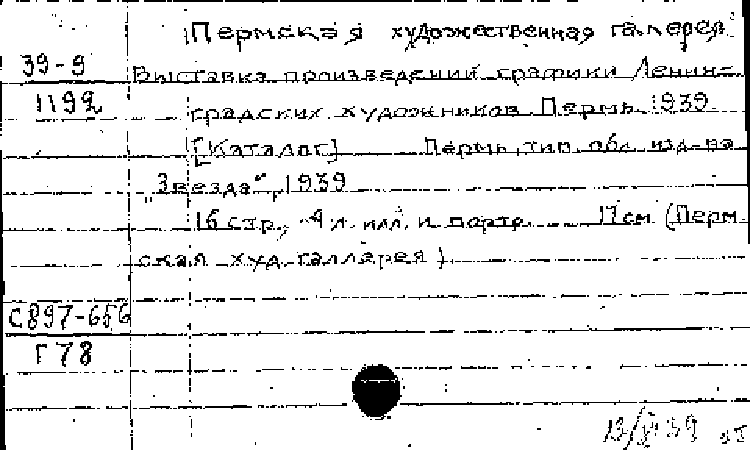 Пермская художественная галерея.
39-9
Выставка произведений графики Ленин-
1192
градских художников Пермь 1939
[Каталог] Пермь, тип. обл. изд-ва
„Звезда“, 1939
16 стр., 4 л. илл. и портр. 17 см (Перм
ская худ. галлерея)
С897-656
Г78
39